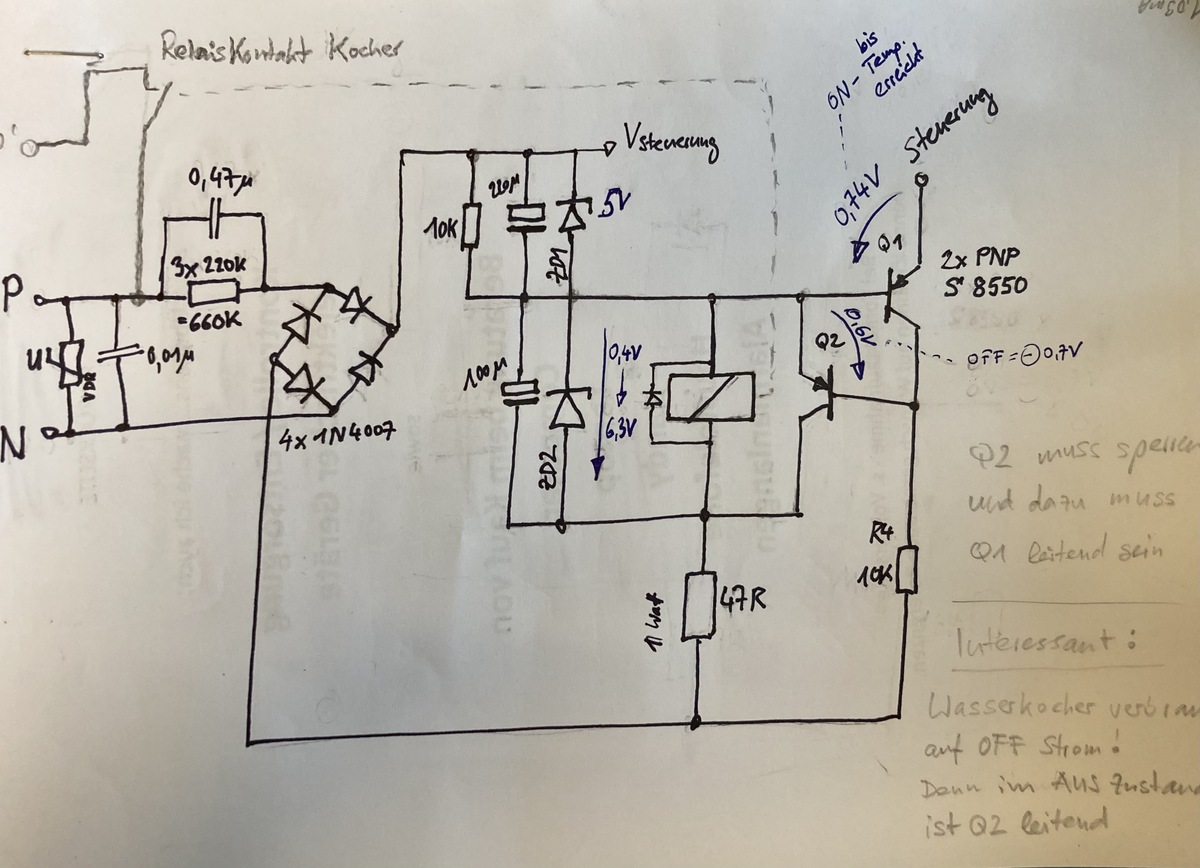 Relais Kontakt Kocher
bis
ON - Temp.
erreicht
Steuerung
0,74V
Vsteuerung
0,47µ
220µ
5V
10K
ZD1
Q1
2x PNP
S 8550
P
3x 220K
=660K
U
VDR
0,01µ
N
4x 1N4007
100µ
ZD2
0,4V
6,3V
Q2
0,6V
OFF = ⊖ 0,7V
Q2 muss sperren
und dazu muss
Q1 leitend sein
R4
10K
47R
Interessant:
Wasserkocher
auf OFF Strom!
Denn im AUS Zustand
ist Q2 leitend